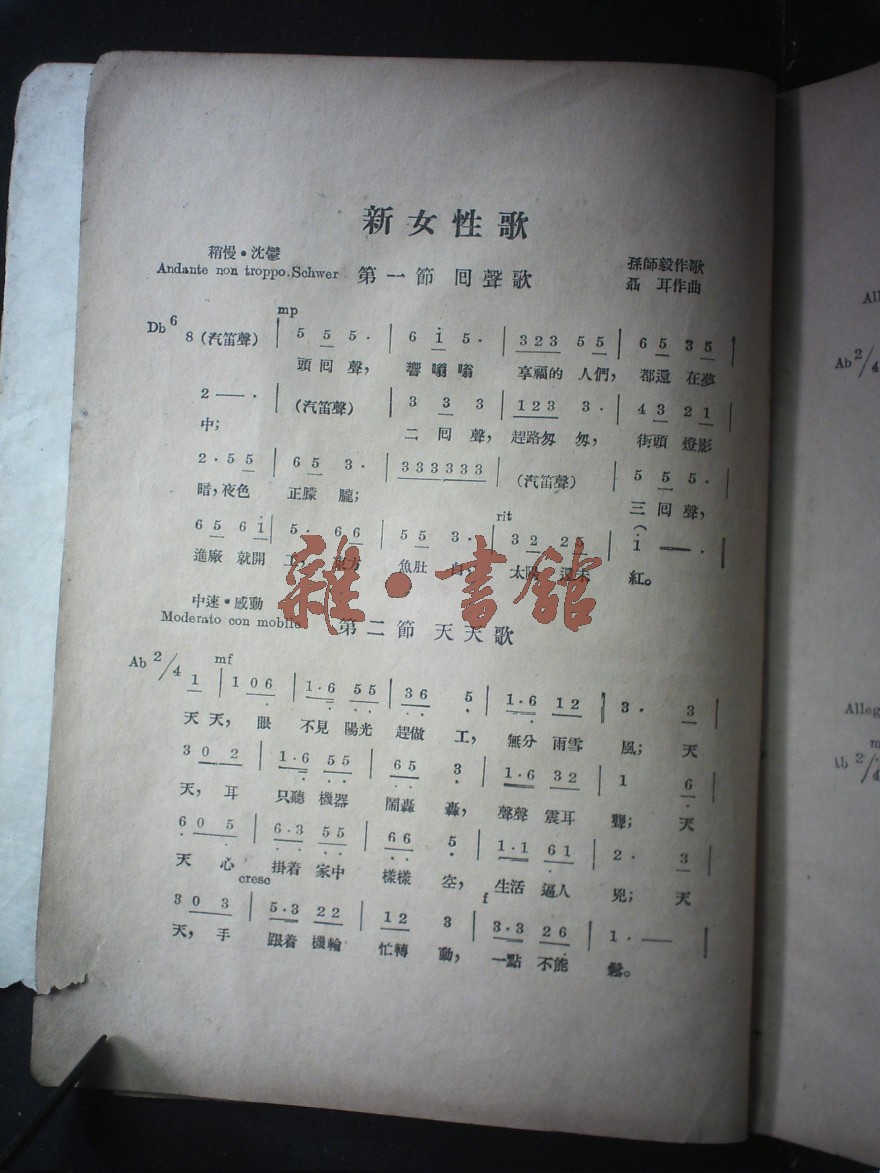 新女性歌
稍慢·沈鬱
Andante non troppo.Schwer
第一節 囘聲歌
孫師毅作歌
聶 耳作曲
mp
Db 6/8 (汽笛聲) | 5 5 5· | 6 i 5· | 3 2 3 5 5 | 6 5 3 5 |
頭囘聲, 響嗡嗡 享福的 人們, 都還 在夢
2 — · (汽笛聲) 3 3 3 | 1 2 3 3· | 4 3 2 1
中; 二囘聲, 趕路匆匆, 街頭 燈影
2· 5 5 | 6 5 3· | 3 3 3 3 3 3 | (汽笛聲) | 5 5 5· |
暗, 夜色 正朦朧; 三囘聲,
rit
6 5 6 i | 5· 6 6 | 5 5 3· | 3 2 2 5 | i — ·
進廠 就開 工, 東方 魚肚 白, 太陽 還未 紅。
雜·書館
中速·感動
Moderato con mobile
第二節 天天歌
mf
Ab 2/4 1 | 1 0 6 | 1·6 5 5 | 3 6 5 | 1·6 1 2 | 3· 3 |
天天, 眼 不見 陽光 趕做 工, 無分 雨雪 風; 天
3 0 2 | 1·6 5 5 | 6 5 3 | 1·6 3 2 | 1 6 |
天, 耳 只聽 機器 鬧轟 轟, 聲聲 震耳 聾; 天
6 0 5 | 6·3 5 5 | 6 6 5 | 1·1 6 1 | 2· 3 |
天 心 掛着 家中 樣樣 空, 生活 逼人 兇; 天
cresc
f
3 0 3 | 5·3 2 2 | 1 2 3 | 3·3 2 6 | 1· — |
天, 手 跟着 機輪 忙轉 動, 一點 不能 鬆。
Ab 2/4
Alleg
Ab 2/4